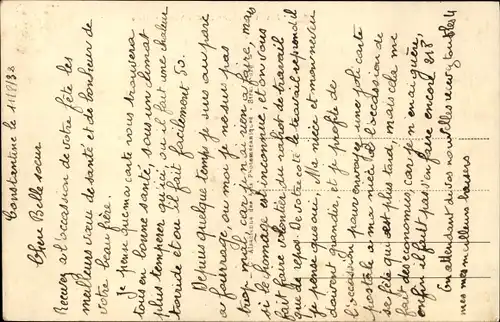 Constantine le 11/8/38
Chère Belle sœur
Recevez à l'occassion de votre fête les
meilleurs vœux de santé et de bonheur de
votre beau frère.
Je pense que ma carte vous trouvera
tous en bonne santé, sous un climat
plus temperer qu'ici, ou il fait une chaleur
torride et ou il fait facilement 50.
Depuis quelque temps je suis au parc
a fourrage, ou moi je ne suis pas
trop mal, car rien à faire, mais
si le chomage est inconnue et on vous
fait faire volontier du rabot de travail
que de repos. De votre coté le travail reprend il
je pense que oui, Ma nièce et mon neveu
doivent grandir, et je profite de
l'occassion pour envoyez une joli carte
postale a ma nièce à l'occassion de
sa fête qui est plus tard, mais cela me
fait des économies, car je n'en ai guère,
enfin il faut pas s'en faire encord 218
En attendant de vos nouvelles recevez toutes
mes meilleurs baisers